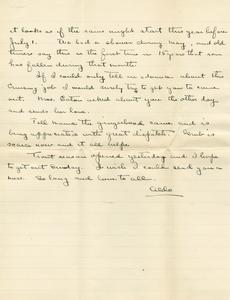 it looks as if the rains might start this year before
July 1. We had a shower during May, and old
timers say this is the first time in 15 years that rain
has fallen during that month.
If I could only tell in advance about this
Cruising job I would surely try to get you to come
out. Mrs. Eaton asked about you the other day
and sends her love.
Tell Mama the gingerbread came and is
being appreciated with great dispatch. Grub is
scarce now and it all helps.
Trout season opened yesterday and I hope
to get out Sunday. I wish I could send you a
mess. So long and love to all.
Aldo